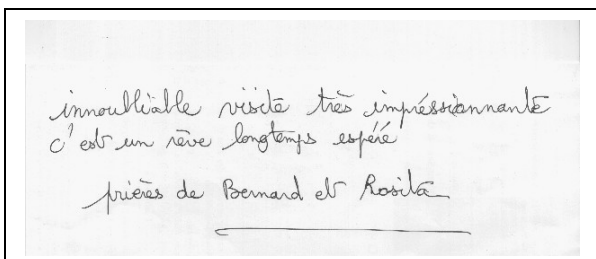 innoulliable visite très impréssionnante
c'est un rêve longtemps espéré
prières de Bernard et Rosita